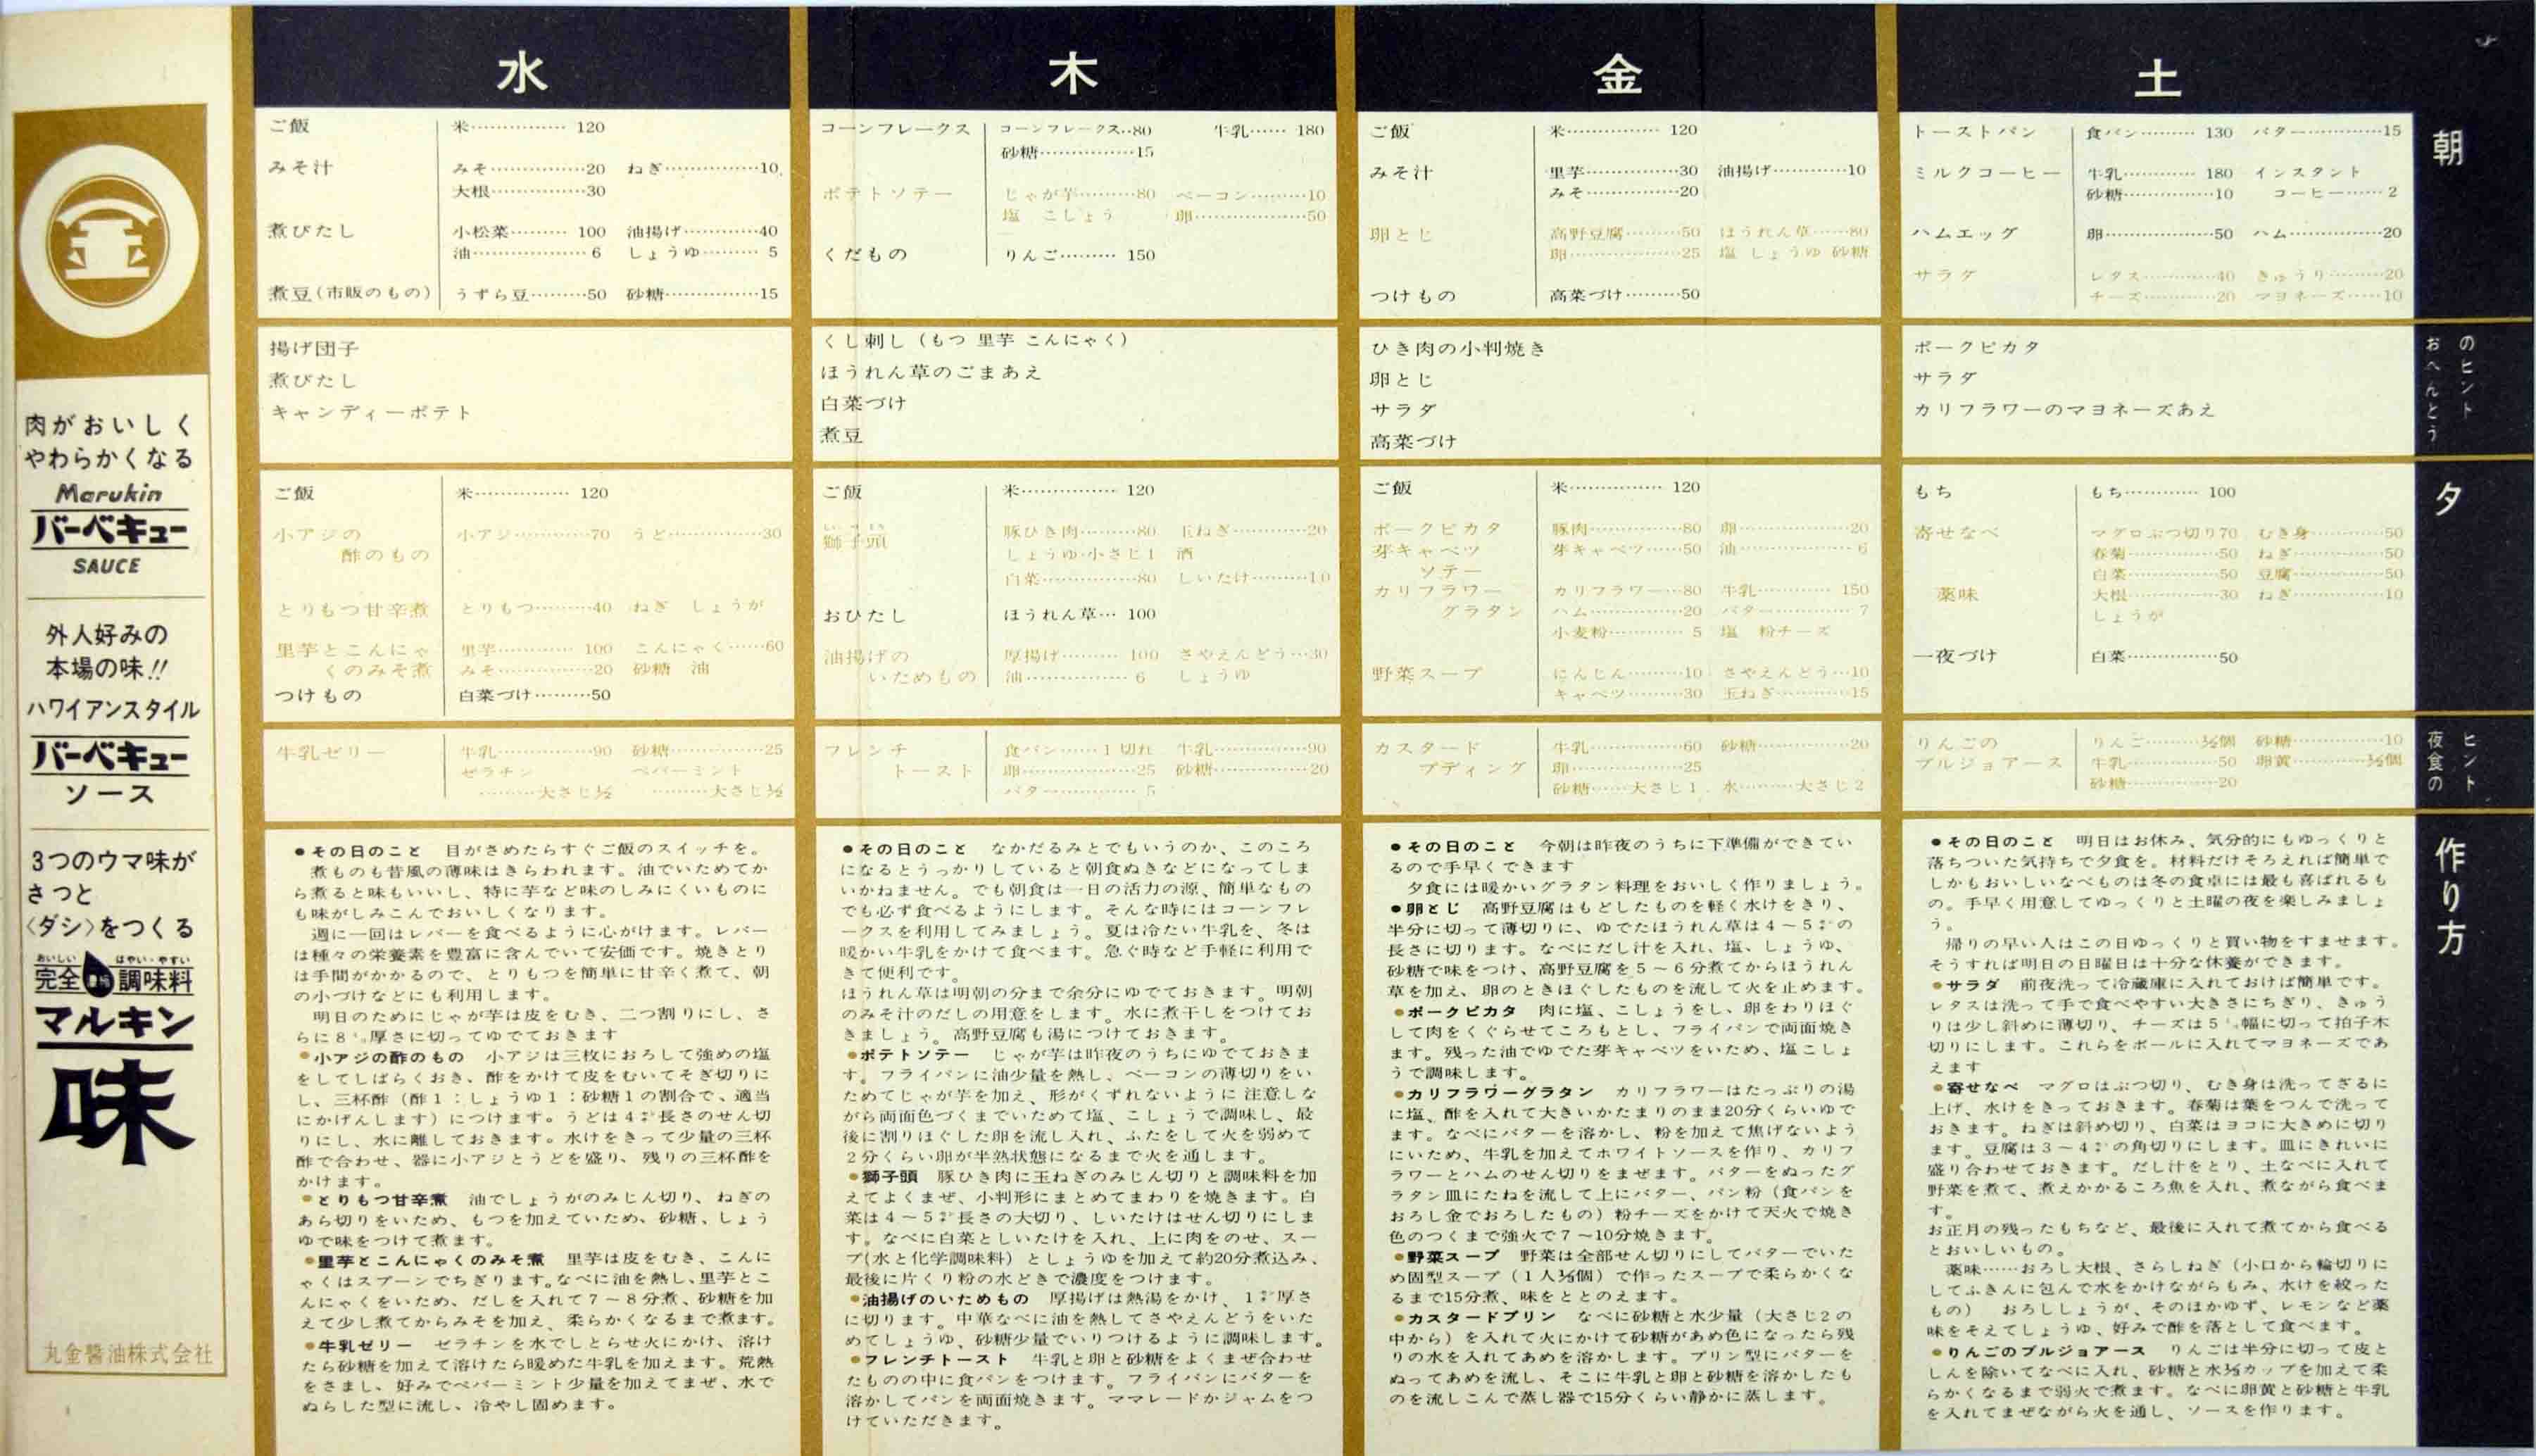 肉がおいしく
やわらかくなる
Marukin
バーベキュー
SAUCE
外人好みの
本場の味!!
ハワイアンスタイル
バーベキュー
ソース
3つのウマ味が
さつと
〈ダシ〉をつくる
おいしい はやい・やすい
完全 調味料
マルキン
味
丸金醬油株式会社
水
ご飯 米…………… 120
みそ汁 みそ……………20 ねぎ……………10
大根……………30
煮びたし 小松菜……… 100 油揚げ…………40
油……………… 6 しょうゆ……… 5
煮豆(市販のもの) うずら豆………50 砂糖……………15
揚げ団子
煮びたし
キャンディーポテト
ご飯 米…………… 120
小アジの 小アジ…………70 うど……………30
酢のもの
とりもつ甘辛煮 とりもつ………40 ねぎ しょうが
里芋とこんにゃ 里芋………… 100 こんにゃく……60
くのみそ煮 みそ……………20 砂糖 油
つけもの 白菜づけ………50
牛乳ゼリー 牛乳……………90 砂糖……………25
ゼラチン ペパーミント
………大さじ½ ………大さじ½
●その日のこと 目がさめたらすぐご飯のスイッチを。
煮ものも昔風の薄味はきらわれます。油でいためてか
ら煮ると味もいいし、特に芋など味のしみにくいものに
も味がしみこんでおいしくなります。
週に一回はレバーを食べるように心がけます。レバー
は種々の栄養素を豊富に含んでいて安価です。焼きとり
は手間がかかるので、とりもつを簡単に甘辛く煮て、朝
の小づけなどにも利用します。
明日のためにじゃが芋は皮をむき、二つ割りにし、さ
らに8㍉厚さに切ってゆでておきます
●小アジの酢のもの 小アジは三枚におろして強めの塩
をしてしばらくおき、酢をかけて皮をむいてそぎ切りに
し、三杯酢(酢1:しょうゆ1:砂糖1の割合で、適当
にかげんします)につけます。うどは4㌢長さのせん切
りにし、水に離しておきます。水けをきって少量の三杯
酢で合わせ、器に小アジとうどを盛り、残りの三杯酢を
かけます。
●とりもつ甘辛煮 油でしょうがのみじん切り、ねぎの
あら切りをいため、もつを加えていため、砂糖、しょう
ゆで味をつけて煮ます。
●里芋とこんにゃくのみそ煮 里芋は皮をむき、こんに
ゃくはスプーンでちぎります。なべに油を熱し、里芋とこ
んにゃくをいため、だしを入れて7〜8分煮、砂糖を加
えて少し煮てからみそを加え、柔らかくなるまで煮ます。
●牛乳ゼリー ゼラチンを水でしとらせ火にかけ、溶け
たら砂糖を加えて溶けたら暖めた牛乳を加えます。荒熱
をさまし、好みでペパーミント少量を加えてまぜ、水で
ぬらした型に流し、冷やし固めます。
木
コーンフレークス コーンフレークス‥80 牛乳…… 180
砂糖……………15
ポテトソテー じゃが芋………80 ベーコン………10
塩 こしょう 卵………………50
くだもの りんご……… 150
くし刺し(もつ 里芋 こんにゃく)
ほうれん草のごまあえ
白菜づけ
煮豆
ご飯 米…………… 120
獅子頭 豚ひき肉………80 玉ねぎ…………20
しょうゆ‥小さじ1 酒
白菜……………80 しいたけ………10
おひたし ほうれん草… 100
油揚げの 厚揚げ……… 100 さやえんどう…30
いためもの 油……………… 6 しょうゆ
フレンチ 食パン……1切れ 牛乳……………90
トースト 卵………………25 砂糖……………20
バター………… 5
●その日のこと なかだるみとでもいうのか、このころ
になるとうっかりしていると朝食ぬきなどになってしま
いかねません。でも朝食は一日の活力の源、簡単なもの
でも必ず食べるようにします。そんな時にはコーンフレ
ークスを利用してみましょう。夏は冷たい牛乳を、冬は
暖かい牛乳をかけて食べます。急ぐ時など手軽に利用で
きて便利です。
ほうれん草は明朝の分まで余分にゆでておきます。明朝
のみそ汁のだしの用意をします。水に煮干しをつけてお
きましょう。高野豆腐も湯につけておきます。
●ポテトソテー じゃが芋は昨夜のうちにゆでておきま
す。フライパンに油少量を熱し、ベーコンの薄切りをい
ためてじゃが芋を加え、形がくずれないように注意しな
がら両面色づくまでいためて塩、こしょうで調味し、最
後に割りほぐした卵を流し入れ、ふたをして火を弱めて
2分くらい卵が半熟状態になるまで火を通します。
●獅子頭 豚ひき肉に玉ねぎのみじん切りと調味料を加
えてよくまぜ、小判形にまとめてまわりを焼きます。白
菜は4〜5㌢長さの大切り、しいたけはせん切りにしま
す。なべに白菜としいたけを入れ、上に肉をのせ、スー
プ(水と化学調味料)としょうゆを加えて約20分煮込み、
最後に片くり粉の水どきで濃度をつけます。
●油揚げのいためもの 厚揚げは熱湯をかけ、1㌢厚さ
に切ります。中華なべに油を熱してさやえんどうをいた
めてしょうゆ、砂糖少量でいりつけるように調味します。
●フレンチトースト 牛乳と卵と砂糖をよくまぜ合わせ
たものの中に食パンをつけます。フライパンにバターを
溶かしてパンを両面焼きます。ママレードかジャムをつ
けていただきます。
金
ご飯 米…………… 120
みそ汁 里芋……………30 油揚げ…………10
みそ……………20
卵とじ 高野豆腐………50 ほうれん草……80
卵………………25 塩 しょうゆ 砂糖
つけもの 高菜づけ………50
ひき肉の小判焼き
卵とじ
サラダ
高菜づけ
ご飯 米…………… 120
ポークピカタ 豚肉……………80 卵………………20
芽キャベツ 芽キャベツ……50 油……………… 6
ソテー
カリフラワー カリフラワー…80 牛乳………… 150
グラタン ハム……………20 バター………… 7
小麦粉………… 5 塩 粉チーズ
野菜スープ にんじん………10 さやえんどう…10
キャベツ………30 玉ねぎ…………15
カスタード 牛乳……………60 砂糖……………20
プディング 卵………………25
砂糖……大さじ1 水………大さじ2
●その日のこと 今朝は昨夜のうちに下準備ができてい
るので手早くできます
夕食には暖かいグラタン料理をおいしく作りましょう。
●卵とじ 高野豆腐はもどしたものを軽く水けをきり、
半分に切って薄切りに、ゆでたほうれん草は4〜5㌢の
長さに切ります。なべにだし汁を入れ、塩、しょうゆ、
砂糖で味をつけ、高野豆腐を5〜6分煮てからほうれん
草を加え、卵のときほぐしたものを流して火を止めます。
●ポークピカタ 肉に塩、こしょうをし、卵をわりほぐ
して肉をくぐらせてころもとし、フライパンで両面焼き
ます。残った油でゆでた芽キャベツをいため、塩こしょ
うで調味します。
●カリフラワーグラタン カリフラワーはたっぷりの湯
に塩、酢を入れて大きいかたまりのまま20分くらいゆで
ます。なべにバターを溶かし、粉を加えて焦げないよう
にいため、牛乳を加えてホワイトソースを作り、カリフ
ラワーとハムのせん切りをまぜます。バターをぬったグ
ラタン皿にたねを流して上にバター、パン粉(食パンを
おろし金でおろしたもの)粉チーズをかけて天火で焼き
色のつくまで強火で7〜10分焼きます。
●野菜スープ 野菜は全部せん切りにしてバターでいた
め固型スープ(1人⅓個)で作ったスープで柔らかくな
るまで15分煮、味をととのえます。
●カスタードプリン なべに砂糖と水少量(大さじ2の
中から)を入れて火にかけて砂糖があめ色になったら残
りの水を入れてあめを溶かします。プリン型にバターを
ぬってあめを流し、そこに牛乳と卵と砂糖を溶かしたも
のを流しこんで蒸し器で15分くらい静かに蒸します。
土
トーストパン 食パン……… 130 バター…………15
ミルクコーヒー 牛乳………… 180 インスタント
砂糖……………10 コーヒー…… 2
ハムエッグ 卵………………50 ハム……………20
サラダ レタス…………40 きゅうり………20
チーズ…………20 マヨネーズ……10
ポークピカタ
サラダ
カリフラワーのマヨネーズあえ
もち もち………… 100
寄せなべ マグロぶつ切り70 むき身…………50
春菊……………50 ねぎ……………50
白菜……………50 豆腐……………50
薬味 大根……………30 ねぎ……………10
しょうが
一夜づけ 白菜……………50
りんごの りんご………½個 砂糖……………10
ブルジョアース 牛乳……………50 卵黄…………½個
砂糖……………20
●その日のこと 明日はお休み、気分的にもゆっくりと
落ちついた気持ちで夕食を。材料だけそろえれば簡単で
しかもおいしいなべものは冬の食卓には最も喜ばれるも
の。手早く用意してゆっくりと土曜の夜を楽しみましょ
う。
帰りの早い人はこの日ゆっくりと買い物をすませます。
そうすれば明日の日曜日は十分な休養ができます。
●サラダ 前夜洗って冷蔵庫に入れておけば簡単です。
レタスは洗って手で食べやすい大きさにちぎり、きゅう
りは少し斜めに薄切り、チーズは5㍉幅に切って拍子木
切りにします。これらをボールに入れてマヨネーズであ
えます
●寄せなべ マグロはぶつ切り、むき身は洗ってざるに
上げ、水けをきっておきます。春菊は葉をつんで洗って
おきます。ねぎは斜め切り、白菜はヨコに大きめに切り
ます。豆腐は3〜4㌢の角切りにします。皿にきれいに
盛り合わせておきます。だし汁をとり、土なべに入れて
野菜を煮て、煮えかかるころ魚を入れ、煮ながら食べま
す。
お正月の残ったもちなど、最後に入れて煮てから食べる
とおいしいもの。
薬味……おろし大根、さらしねぎ(小口から輪切りに
してふきんに包んで水をかけながらもみ、水けを絞った
もの) おろししょうが、そのほかゆず、レモンなど薬
味をそえてしょうゆ、好みで酢を落として食べます。
●りんごのブルジョアース りんごは半分に切って皮と
しんを除いてなべに入れ、砂糖と水⅓カップを加えて柔
らかくなるまで弱火で煮ます。なべに卵黄と砂糖と牛乳
を入れてまぜながら火を通し、ソースを作ります。
朝
おべんとう
のヒント
夕
夜食の
ヒント
作り方